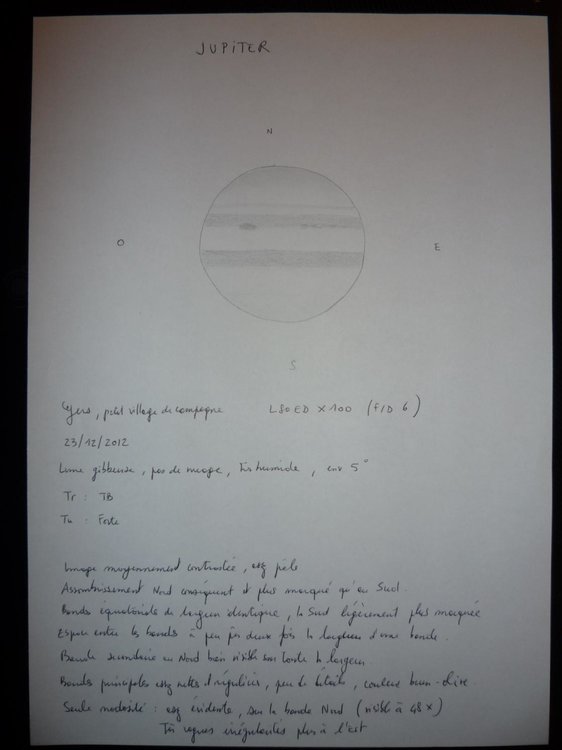 JUPITER
N
O
E
S
, petit village de campagne L80ED x100 (F/D 6)
23/12/2012
Lune gibbeuse, pas de nuage, très humide, env 5°
Tr : TB
Tu : Forte
Image moyennement contrastée, assez pâle
Assombrissement Nord conséquent et plus marqué qu'au Sud.
Bandes équatoriales de largeur identique, la Sud légèrement plus marquée
Espace entre les bandes à peu près deux fois la largeur d'une bande.
Bande secondaire au Nord bien visible sur toute la largeur.
Bandes principales assez nettes et régulières, peu de détails, couleur brun-
Seule nodosité : assez évidente, sur la bande Nord (visible à 48x)
Très vagues irrégularités plus à l'est